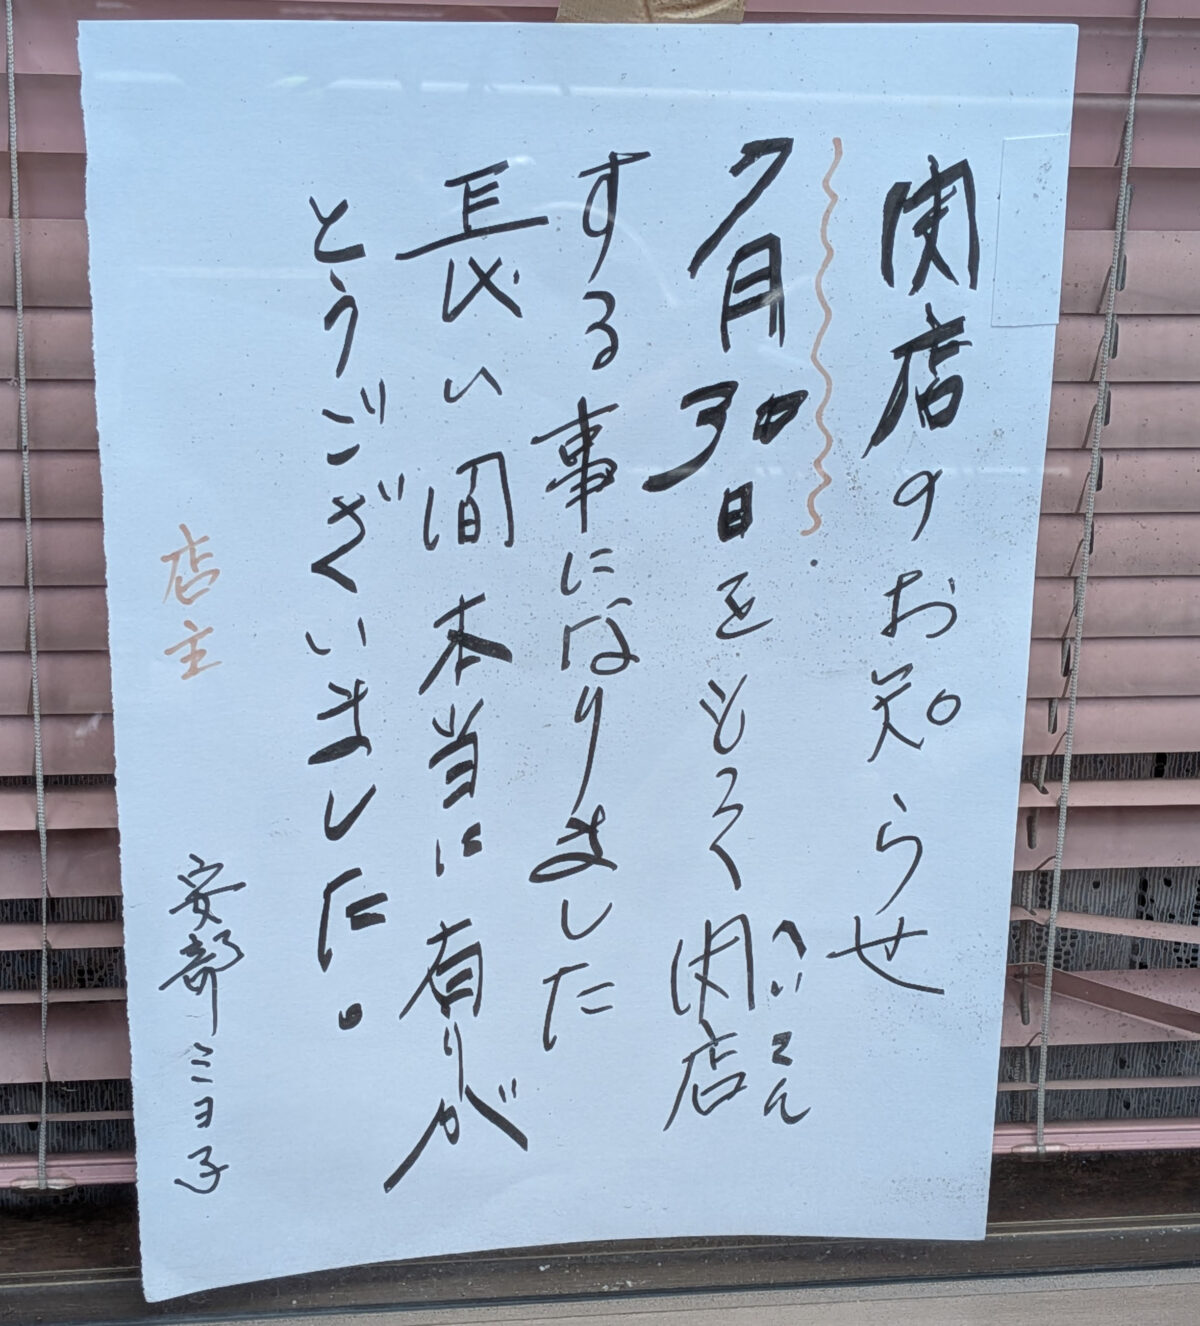 閉店のお知らせ
7月30日をもって閉店
へいてん
する事になりました
長い間本当に有りが
とうございました。
店主 安部ミヨ子